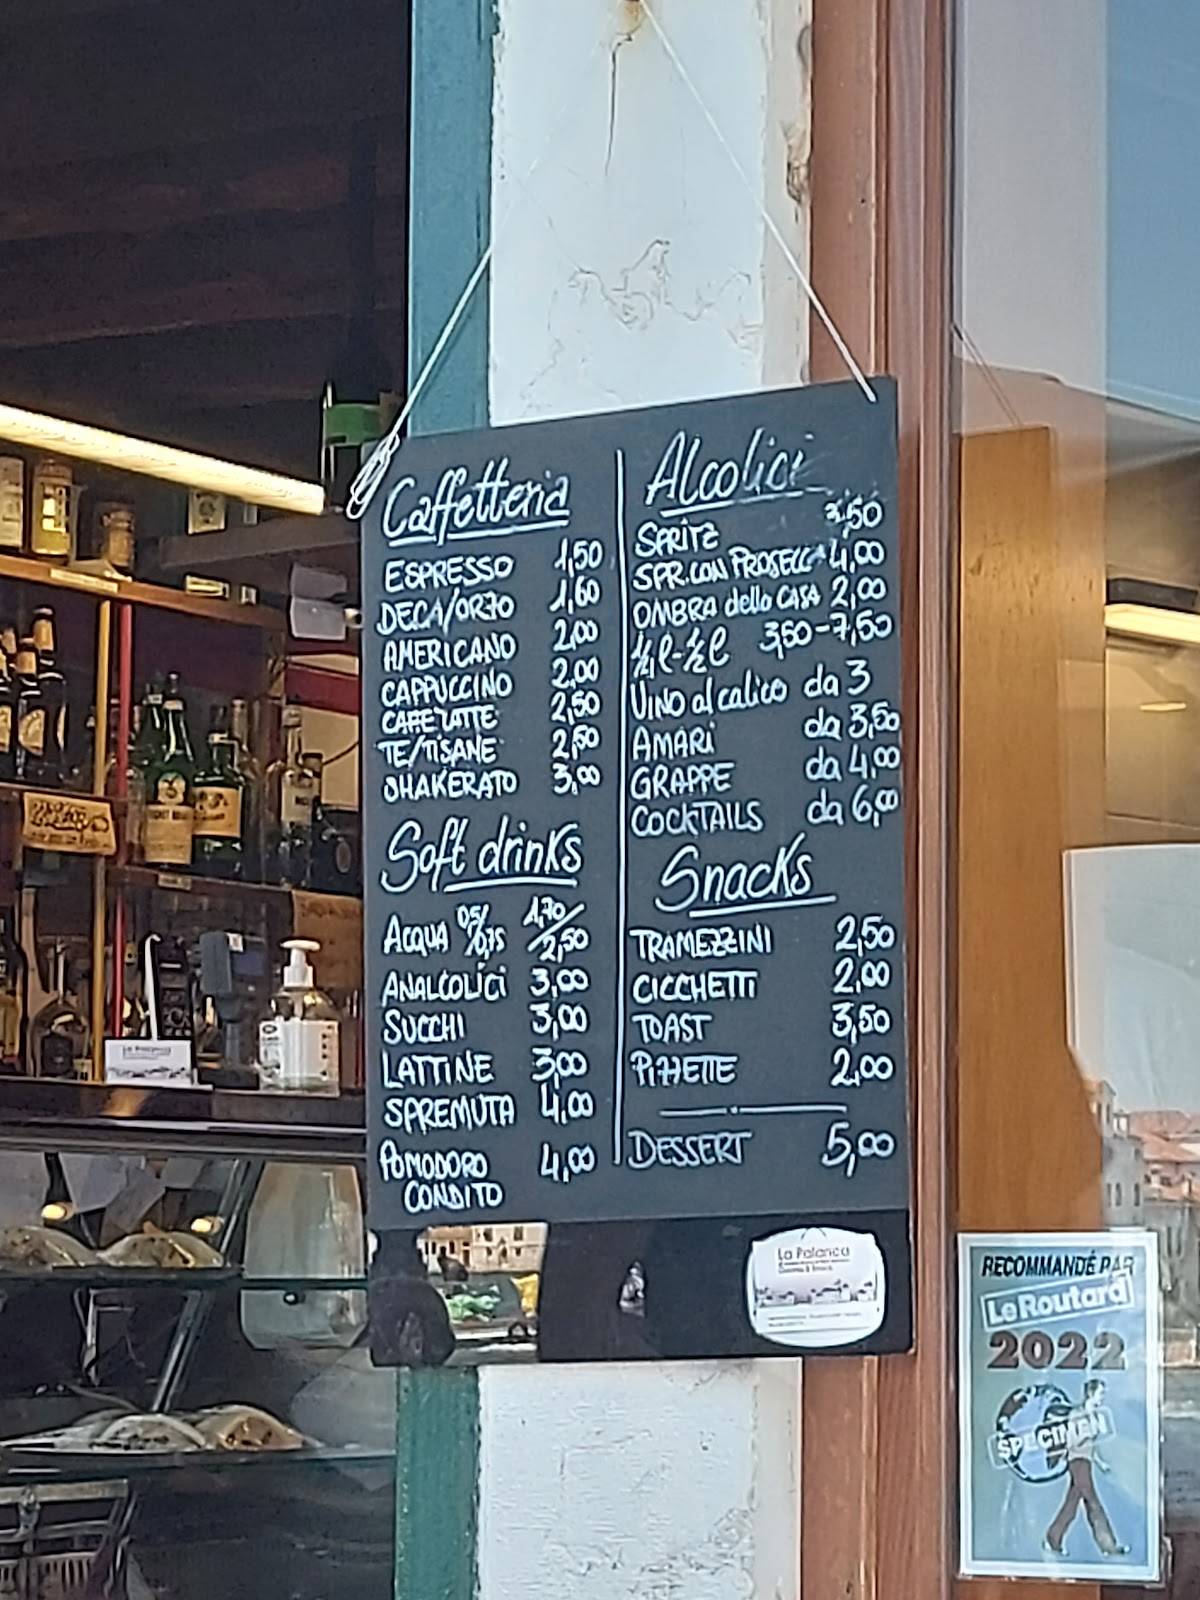 Caffetteria
ESPRESSO 1,50
DECA/ORZO 1,60
AMERICANO 2,00
CAPPUCCINO 2,00
CAFFELATTE 2,50
TE/TISANE 2,50
SHAKERATO 3,00
Soft drinks
ACQUA 0,5/0,75 1,70/2,50
ANALCOLICI 3,00
SUCCHI 3,00
LATTINE 3,00
SPREMUTA 4,00
POMODORO 4,00
CONDITO
Alcolici
SPRITZ 3,50
SPR. CON PROSECCO 4,00
OMBRA della CASA 2,00
¼ l - ½ l 3,50-7,50
VINO al calice da 3
AMARI da 3,50
GRAPPE da 4,00
COCKTAILS da 6,00
Snacks
TRAMEZZINI 2,50
CICCHETTI 2,00
TOAST 3,50
PIZZETTE 2,00
DESSERT 5,00
La Palanca
RECOMMANDÉ PAR
Le Routard
2022
SPECIMEN